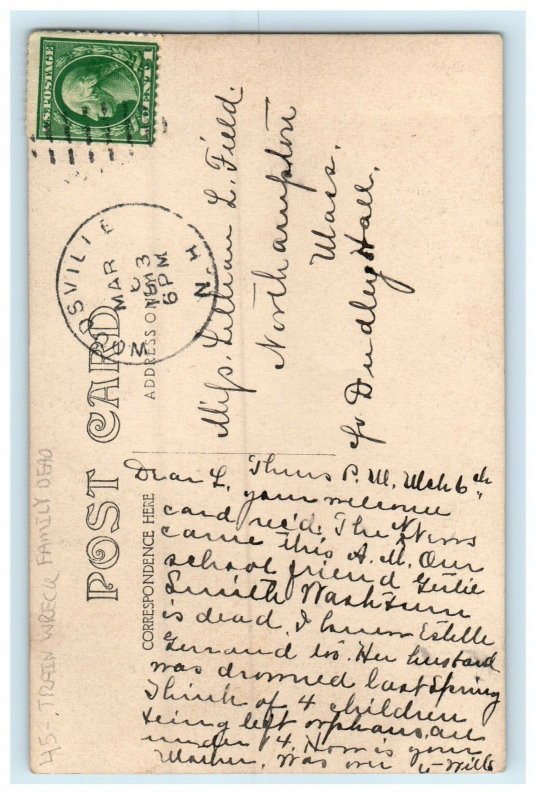 U.S. POSTAGE
1 CENT 1
WOODSVILLE
N.H.
MAR
6
1913
6 PM
POST CARD
ADDRESS ONLY
CORRESPONDENCE HERE
Miss. Lillian L. Field.
Northampton
Mass.
c/o Dudley Hall.
Thurs P.M. Mch 6th
Dear L. your welcome
card rec'd. The News
came this A.M. Our
school friend Gertie
Smith Washburn
is dead. I know Estelle
Her husband
was drowned last Spring
Think of 4 children
being left orphans, all
under 14. How is your
Mother, was over to Wills
45- TRAIN WRECK FAMILY DEAD